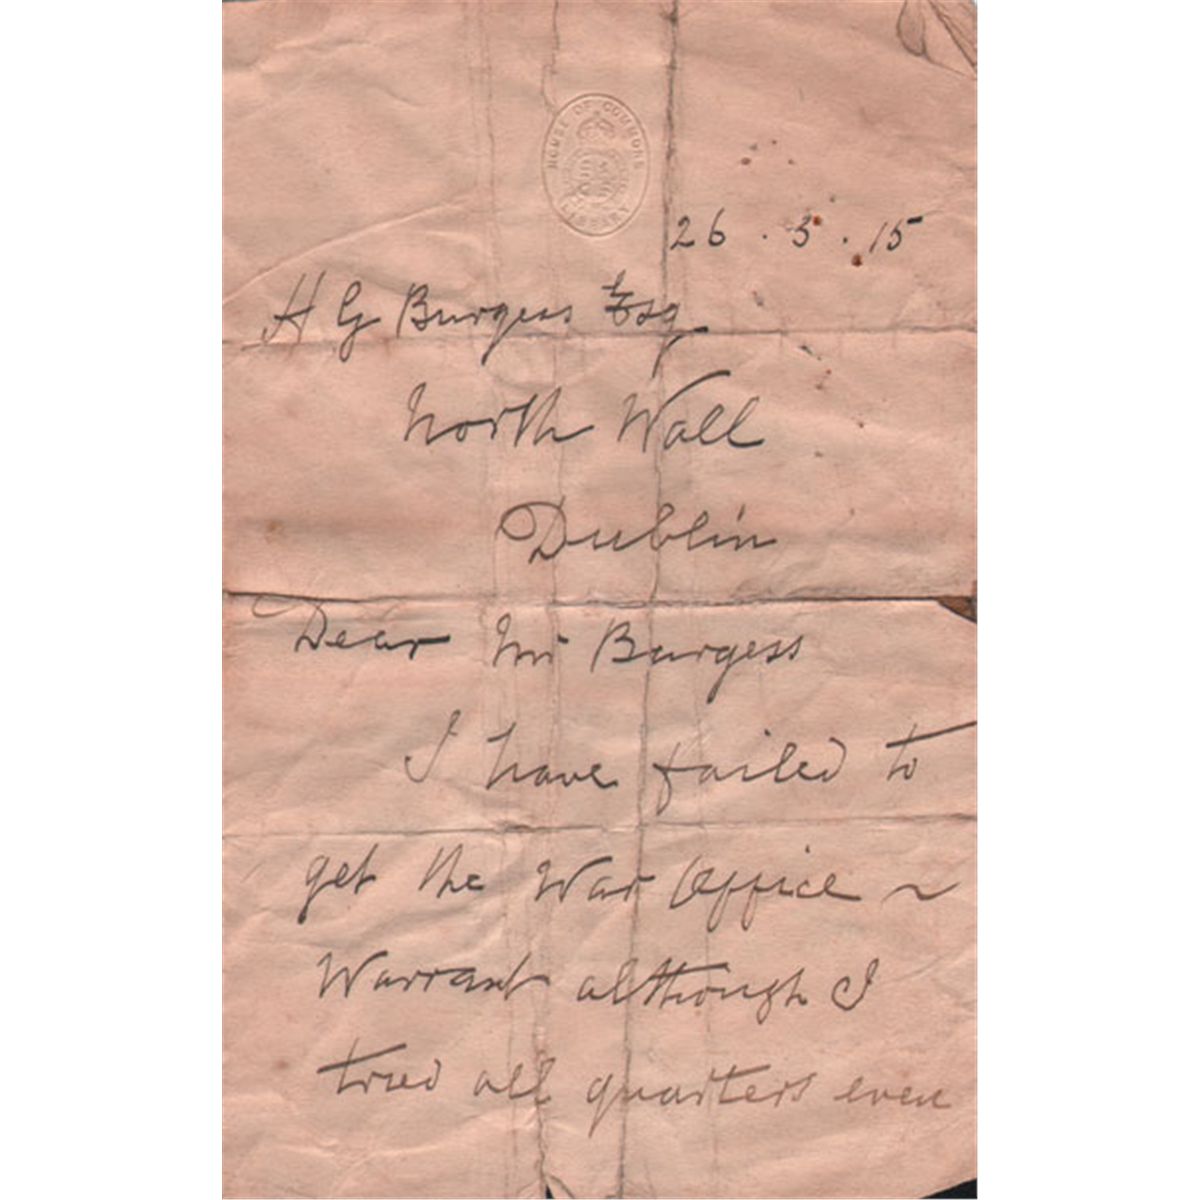 HOUSE OF COMMONS
LIBRARY
26 . 3 . 15
H G Burgess Esq
North Wall
Dublin
Dear Mr Burgess
I have failed to
get the War Office ~
Warrant although I
tried all quarters even